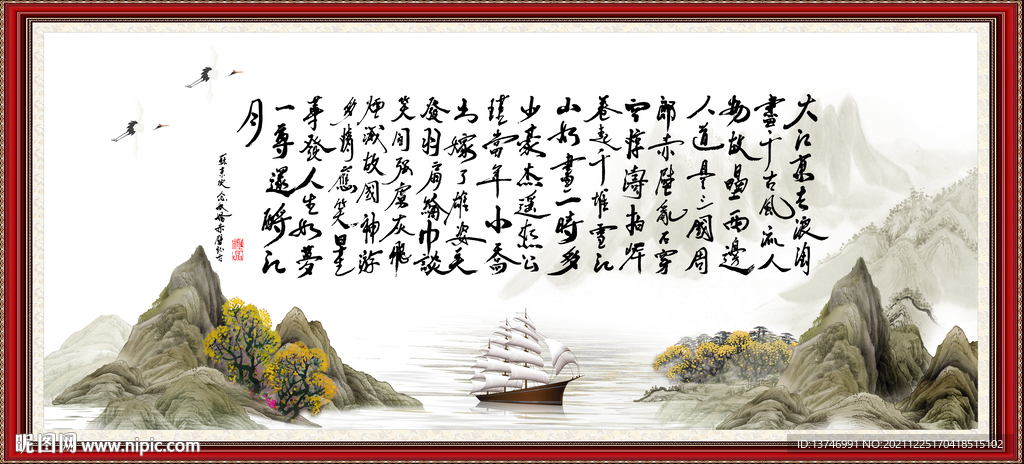 大江東去浪淘
盡千古風流人
物故壘西邊
人道是三國周
郎赤壁亂石穿
空驚濤拍岸
卷起千堆雪江
山如畫一時多
少豪杰遥想公
瑾當年小喬
出嫁了雄姿英
發羽扇綸巾談
笑间強虜灰飛
煙滅故國神游
多情應笑早生
華發人生如夢
一尊還酹江
月
蘇東坡念奴嬌赤壁懷古
昵图网 www.nipic.com
ID:13746991 NO:20211225170418515102